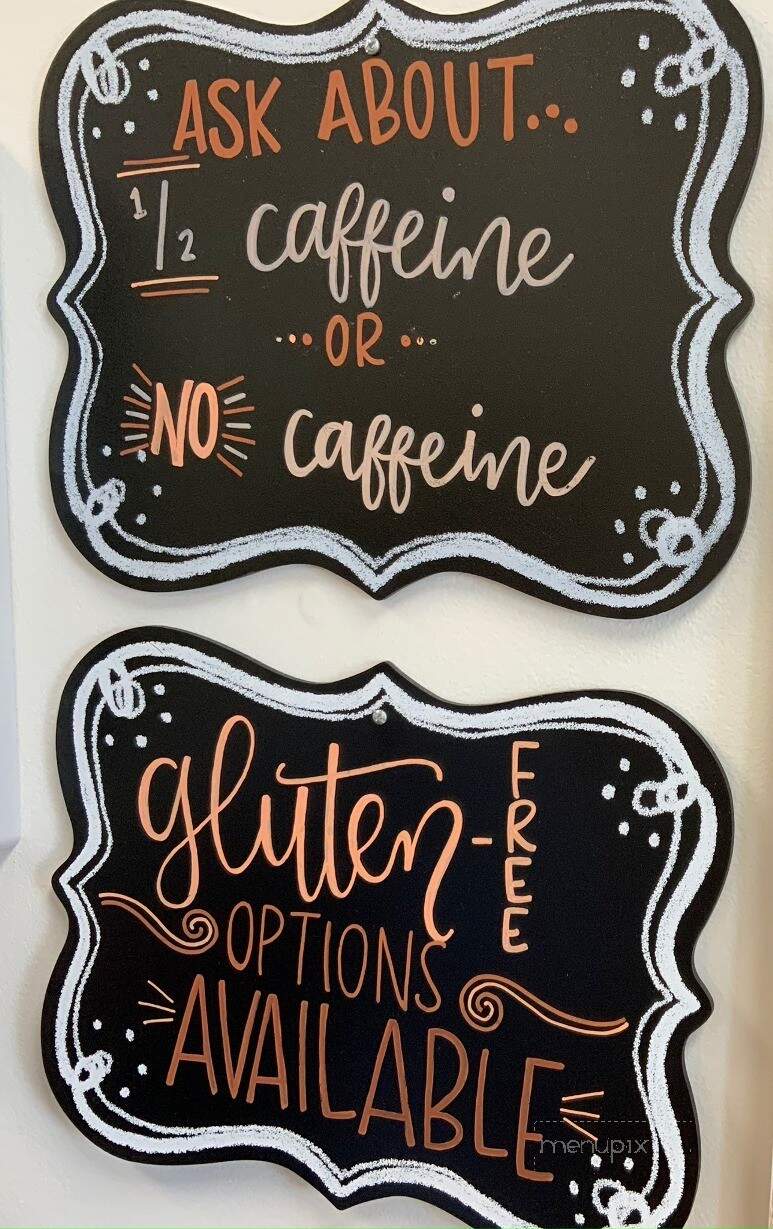 ASK ABOUT...
1/2 caffeine
... OR ...
NO caffeine
gluten-FREE
OPTIONS
AVAILABLE
menupix